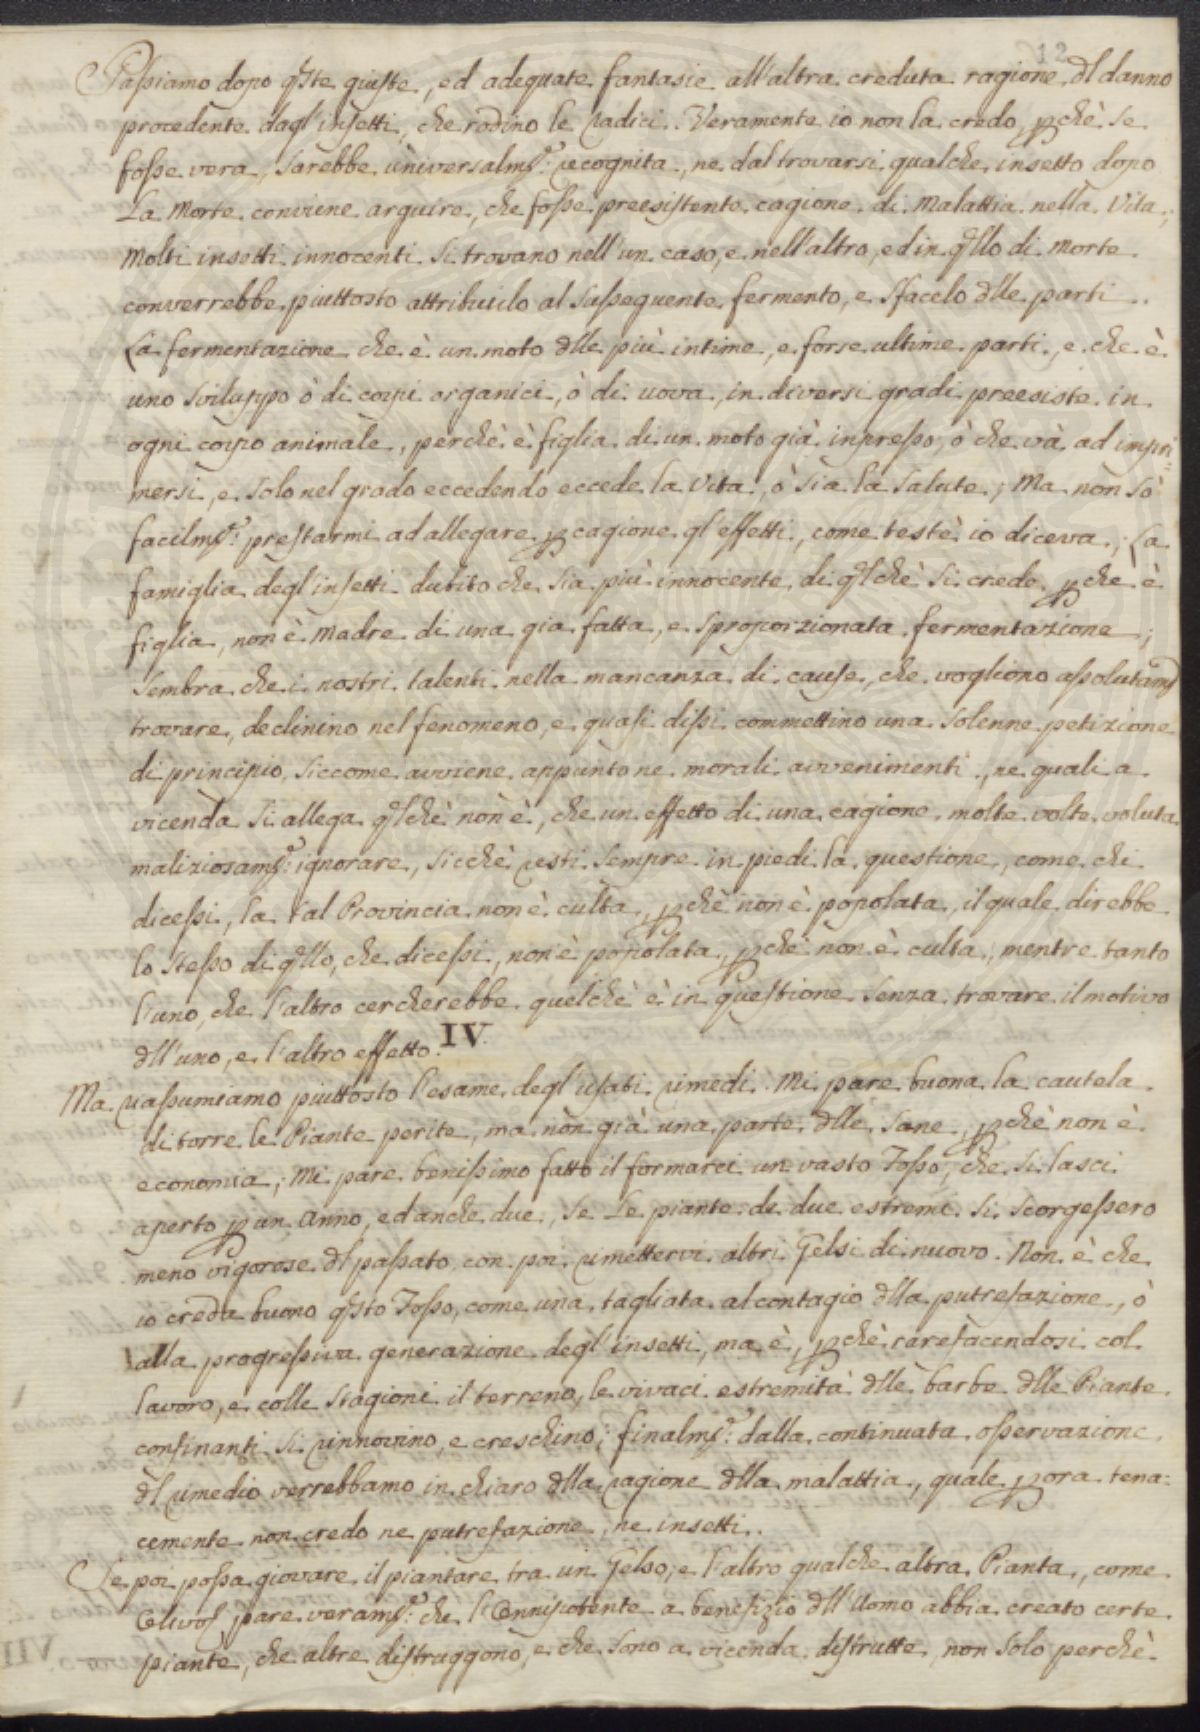 12
Passiamo dopo q̃ste giuste, ed adequate fantasie all'altra creduta ragione dl danno
procedente dagl'insetti, che rodino le radici. Veramente io non la credo, ꝑchè se
fosse vera, sarebbe universalmẽ: recognita, ne dal trovarsi qualche insetto dopo
La Morte conviene arguire, che fosse preesistente cagione di Malattia nella Vita;
Molti insetti innocenti si trovano nell'un caso, e nell'altro, ed in q̃llo di Morte
converrebbe piuttosto attribuilo al susseguente fermento, e sfacelo dlle parti.
La fermentazione che è un moto dlle più intime, e forse ultime parti, e che è
uno sviluppo ò di corpi organici, ò di uova, in diversi gradi preesiste in
ogni corpo animale, perchè è figlia di un moto già inpresso, ò che và ad impri=
mersi, e solo nel grado eccedendo eccede la Vita, ò sia la salute; Ma non sò
facilmẽ: prestarmi ad allegare ꝑ cagione gl'effetti, come testè io diceva; La
famiglia degl'insetti dubito che sia più innocente di q̃lchè si crede ꝑche è
figlia, non è Madre di una gia fatta, e sproporzionata fermentazione;
Sembra che i nostri talenti nella mancanza di cause, che vogliono assolutamẽ
trovare, declinino nel fenomeno, e quasi dissi commettino una solenne petizione
di principio, siccome avviene appunto ne morali avvenimenti, ne quali a
vicenda si allega q̃lchè non è, che un effetto di una cagione molte volte voluta
maliziosamẽ: ignorare, sicchè resti sempre in piedi la questione, come chi
dicessi, la tal Provincia non è culta, ꝑchè non è popolata, il quale direbbe
lo stesso di q̃llo, che dicessi, non è popolata, ꝑchè non è culta, mentre tanto
l'uno, che l'altro cercherebbe quelchè è in questione senza trovare il motivo
dll'uno, e l'altro effetto.
IV.
Ma riassumiamo piuttosto l'esame degl'usati rimedi. Mi pare buona la cautela
di torre le Piante perite, ma non già una parte dlle sane, ꝑchè non è
economia; Mi pare benissimo fatto il formarci un vasto Fosso, che si lasci
aperto ꝑ un Anno, ed anche due, se Le piante de due estremi si scorgessero
meno vigorose dl passato, con poi rimettervi altri Gelsi di nuovo. Non è che
io creda buono q̃sto Fosso, come una tagliata al contagio dlla putrefazione, ò
alla progressiva generazione degl'insetti, ma è, ꝑchè rarefacendosi col
lavoro, e colle stagioni il terreno, le vivaci estremità dlle barbe dlle Piante
confinanti si rinnovino, e creschino; finalmẽ: dalla continuata osservazione
dl rimedio verrebbamo in chiaro dlla ragione dlla malattia, quale ꝑ ora tena=
cemente non credo ne putrefazione, ne insetti.
Se poi possa giovare il piantare tra un Gelso, e l'altro qualche altra Pianta, come
pare veramẽ: chè l'Onnipotente a benefizio dll'Uomo abbia creato certe
piante, che altre distruggono, e che sono a vicenda distrutte, non solo perchè